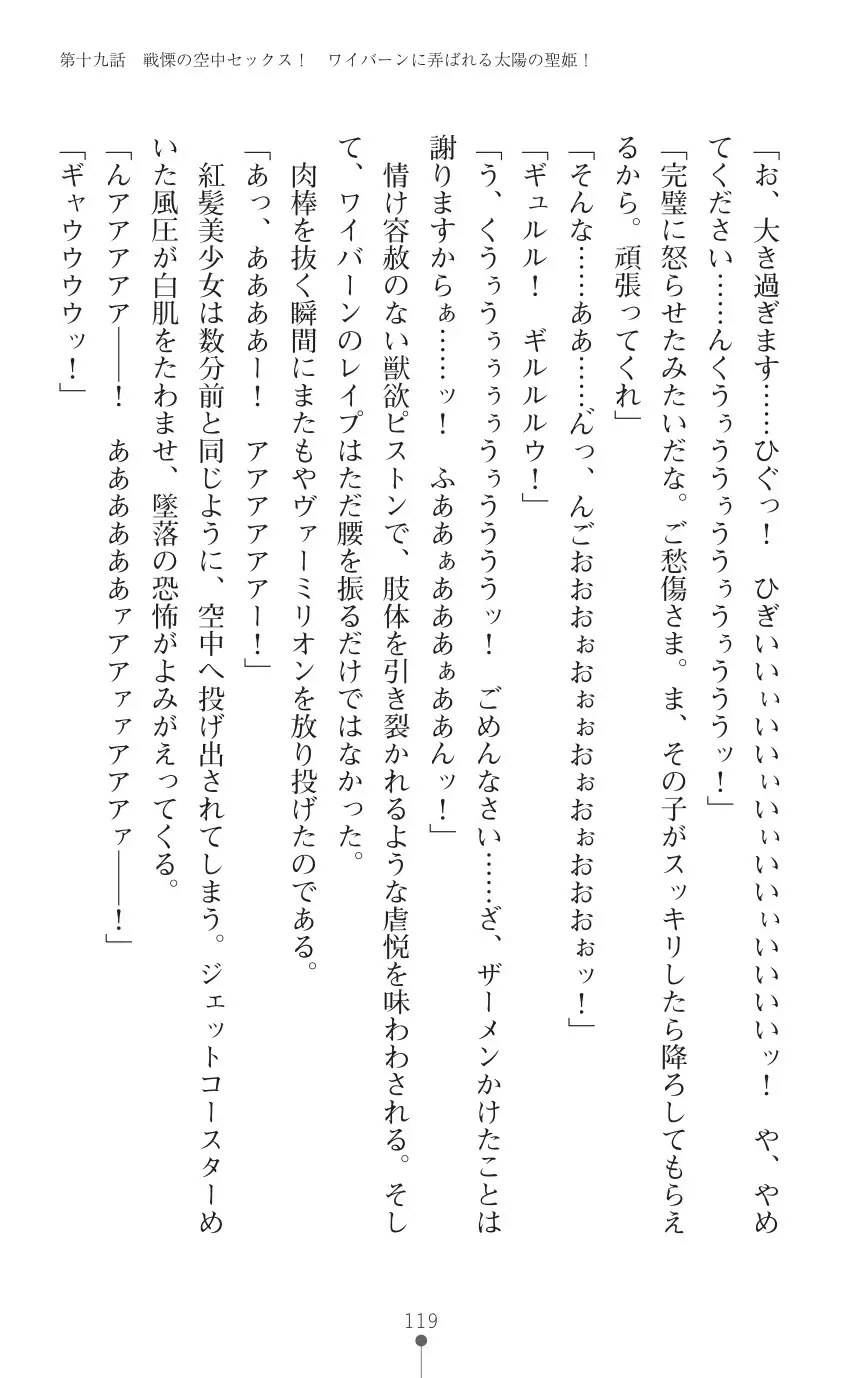 第十九話　戦慄の空中セックス！　ワイバーンに弄ばれる太陽の聖姫！
「お、大き過ぎます……ひぐっ！　ひぎいいぃいいぃいぃいいぃいいいいッ！　や、やめ
てください……んくうぅううぅううぅうぅうううッ！」
「完璧に怒らせたみたいだな。ご愁傷さま。ま、その子がスッキリしたら降ろしてもらえ
るから。頑張ってくれ」
「そんな……ああ……ん゛っ、んごおおおぉおぉぉおぉおぉおおおぉッ！」
「ギュルル！　ギルルルウ！」
「う、くうぅうぅぅぅうぅううううッ！　ごめんなさい……ざ、ザーメンかけたことは
謝りますからぁ……ッ！　ふああぁあああぁああんッ！」
情け容赦のない獣欲ピストンで、肢体を引き裂かれるような虐悦を味わわされる。そし
て、ワイバーンのレイプはただ腰を振るだけではなかった。
肉棒を抜く瞬間にまたもやヴァーミリオンを放り投げたのである。
「あっ、ああああー！　アアアアアアー！」
紅髪美少女は数分前と同じように、空中へ投げ出されてしまう。ジェットコースターめ
いた風圧が白肌をたわませ、墜落の恐怖がよみがえってくる。
「んアアアアア――！　ああああああァアアァァアアアァ――！」
「ギャウウウウッ！」
119